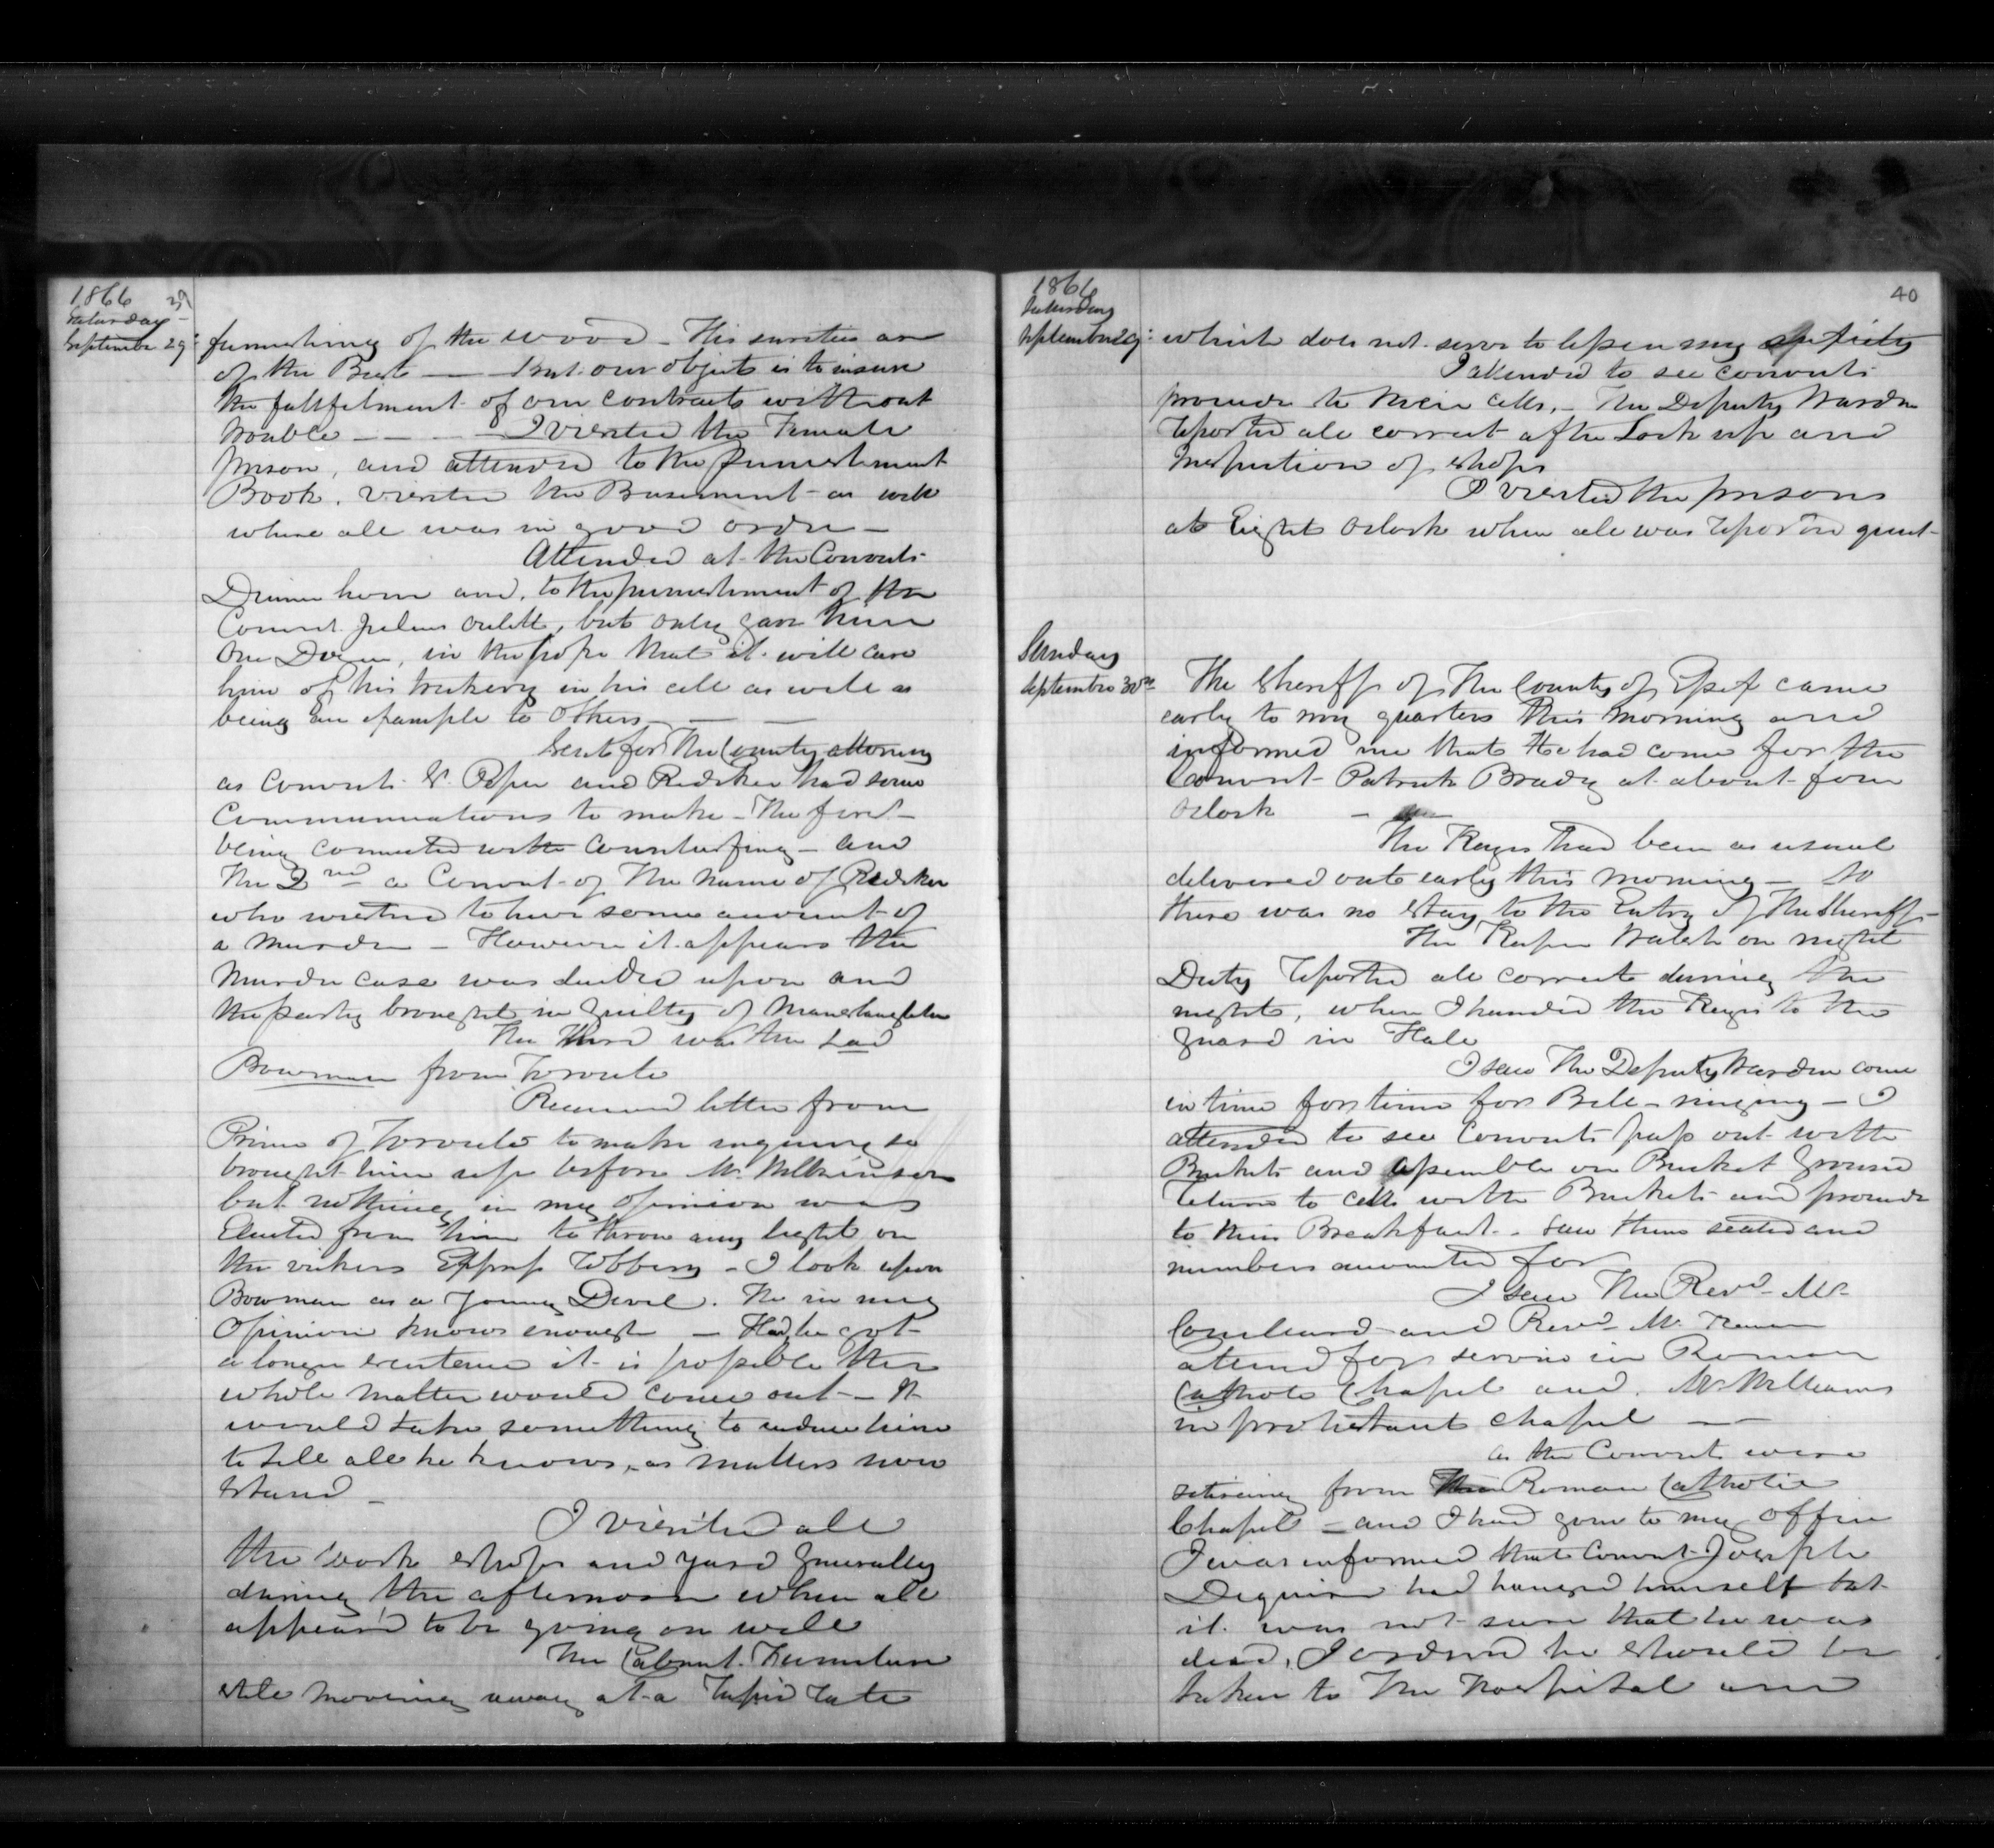 1866 39
Saturday
September 29
furnishing of the wood - His sureties are
of the Best — But our object is to insure
the fullfilment of our contracts without
trouble - - - - I visited the Female
prison, and attended to the punishment
Book. visited the Basement as well
where all was in good order -
Attended at the Convicts
Dinner hour and, to the punishment of the
Convict Julius Oulett, but only gave him
One Dozen, in the hope that it will cure
him of his trickery in his cell as well as
being an example to others - —
Sent for The County attorney
as Convicts & and Redsker had some
Communications to make - The first
being connected with Counterfing - and
The 2nd a Convict of The name of Redsker
who wished to give some account of
a murder - However it appears the
murder case was decided upon and
the party brought in guilty of Manslaughter
The third was the Lad
Bowman from Toronto
Received letter from
Prince of Toronto to make inquiry so
brought him up before Mr. Wilkinson
but nothing in my opinion was
Elicited from him to throw any light on
the vickers Express Robbery - I look upon
Bowman as a Young Devil. He in my
Opinion knows enough - Had he got
a longer sentence it is possible the
whole matter would come out - It
would take something to induce him
to tell all he knows, as matters now
stand -
I visited all
the work shops and yard generally
during the afternoon when all
appeared to be going on well
The Cabinet Furniture
still moving away at a rapid rate
1866 40
Saturday
September 29:
which does not serve to lessen my
I attended to see convicts
proceede to their cells, - The Deputy Warden
reported all correct after Lock up and
Inspection of shops
I visited the prisons
at Eight Oclock when all was reported quiet -
Sunday
September 30th
The Sheriff of The County of Essex came
early to my quarters this morning and
informed me that He had come for the
Convict Patrick Brady at about four
Oclock -
The Keys had been as usual
delivered out early this morning - So
there was no stay to the Entry of The Sheriff -
The Keeper Walsh on night
Duty reported all correct during the
night, when I handed the Keys to the
guard in Hall
I saw The Deputy Warden come
in time for time for Bell-ringing - I
attended to see Convicts pass out with
Buckets and assemble on Bucket ground
return to cells with Buckets and proceede
to their Breakfast. - saw them seated and
numbers accounted for
I saw The Revd - Mr
and Revd Mr.
attend for service in Roman
Catholic Chapel and Mr. Williams
in protestant chapel — —
as the Convicts were
retireing from the Roman Catholic
Chapel - and I had gone to my office
I was informed that Convict Joseph
had hanged himself but
it was not sure that he was
dead, I ordered he should be
taken to The Hospital and